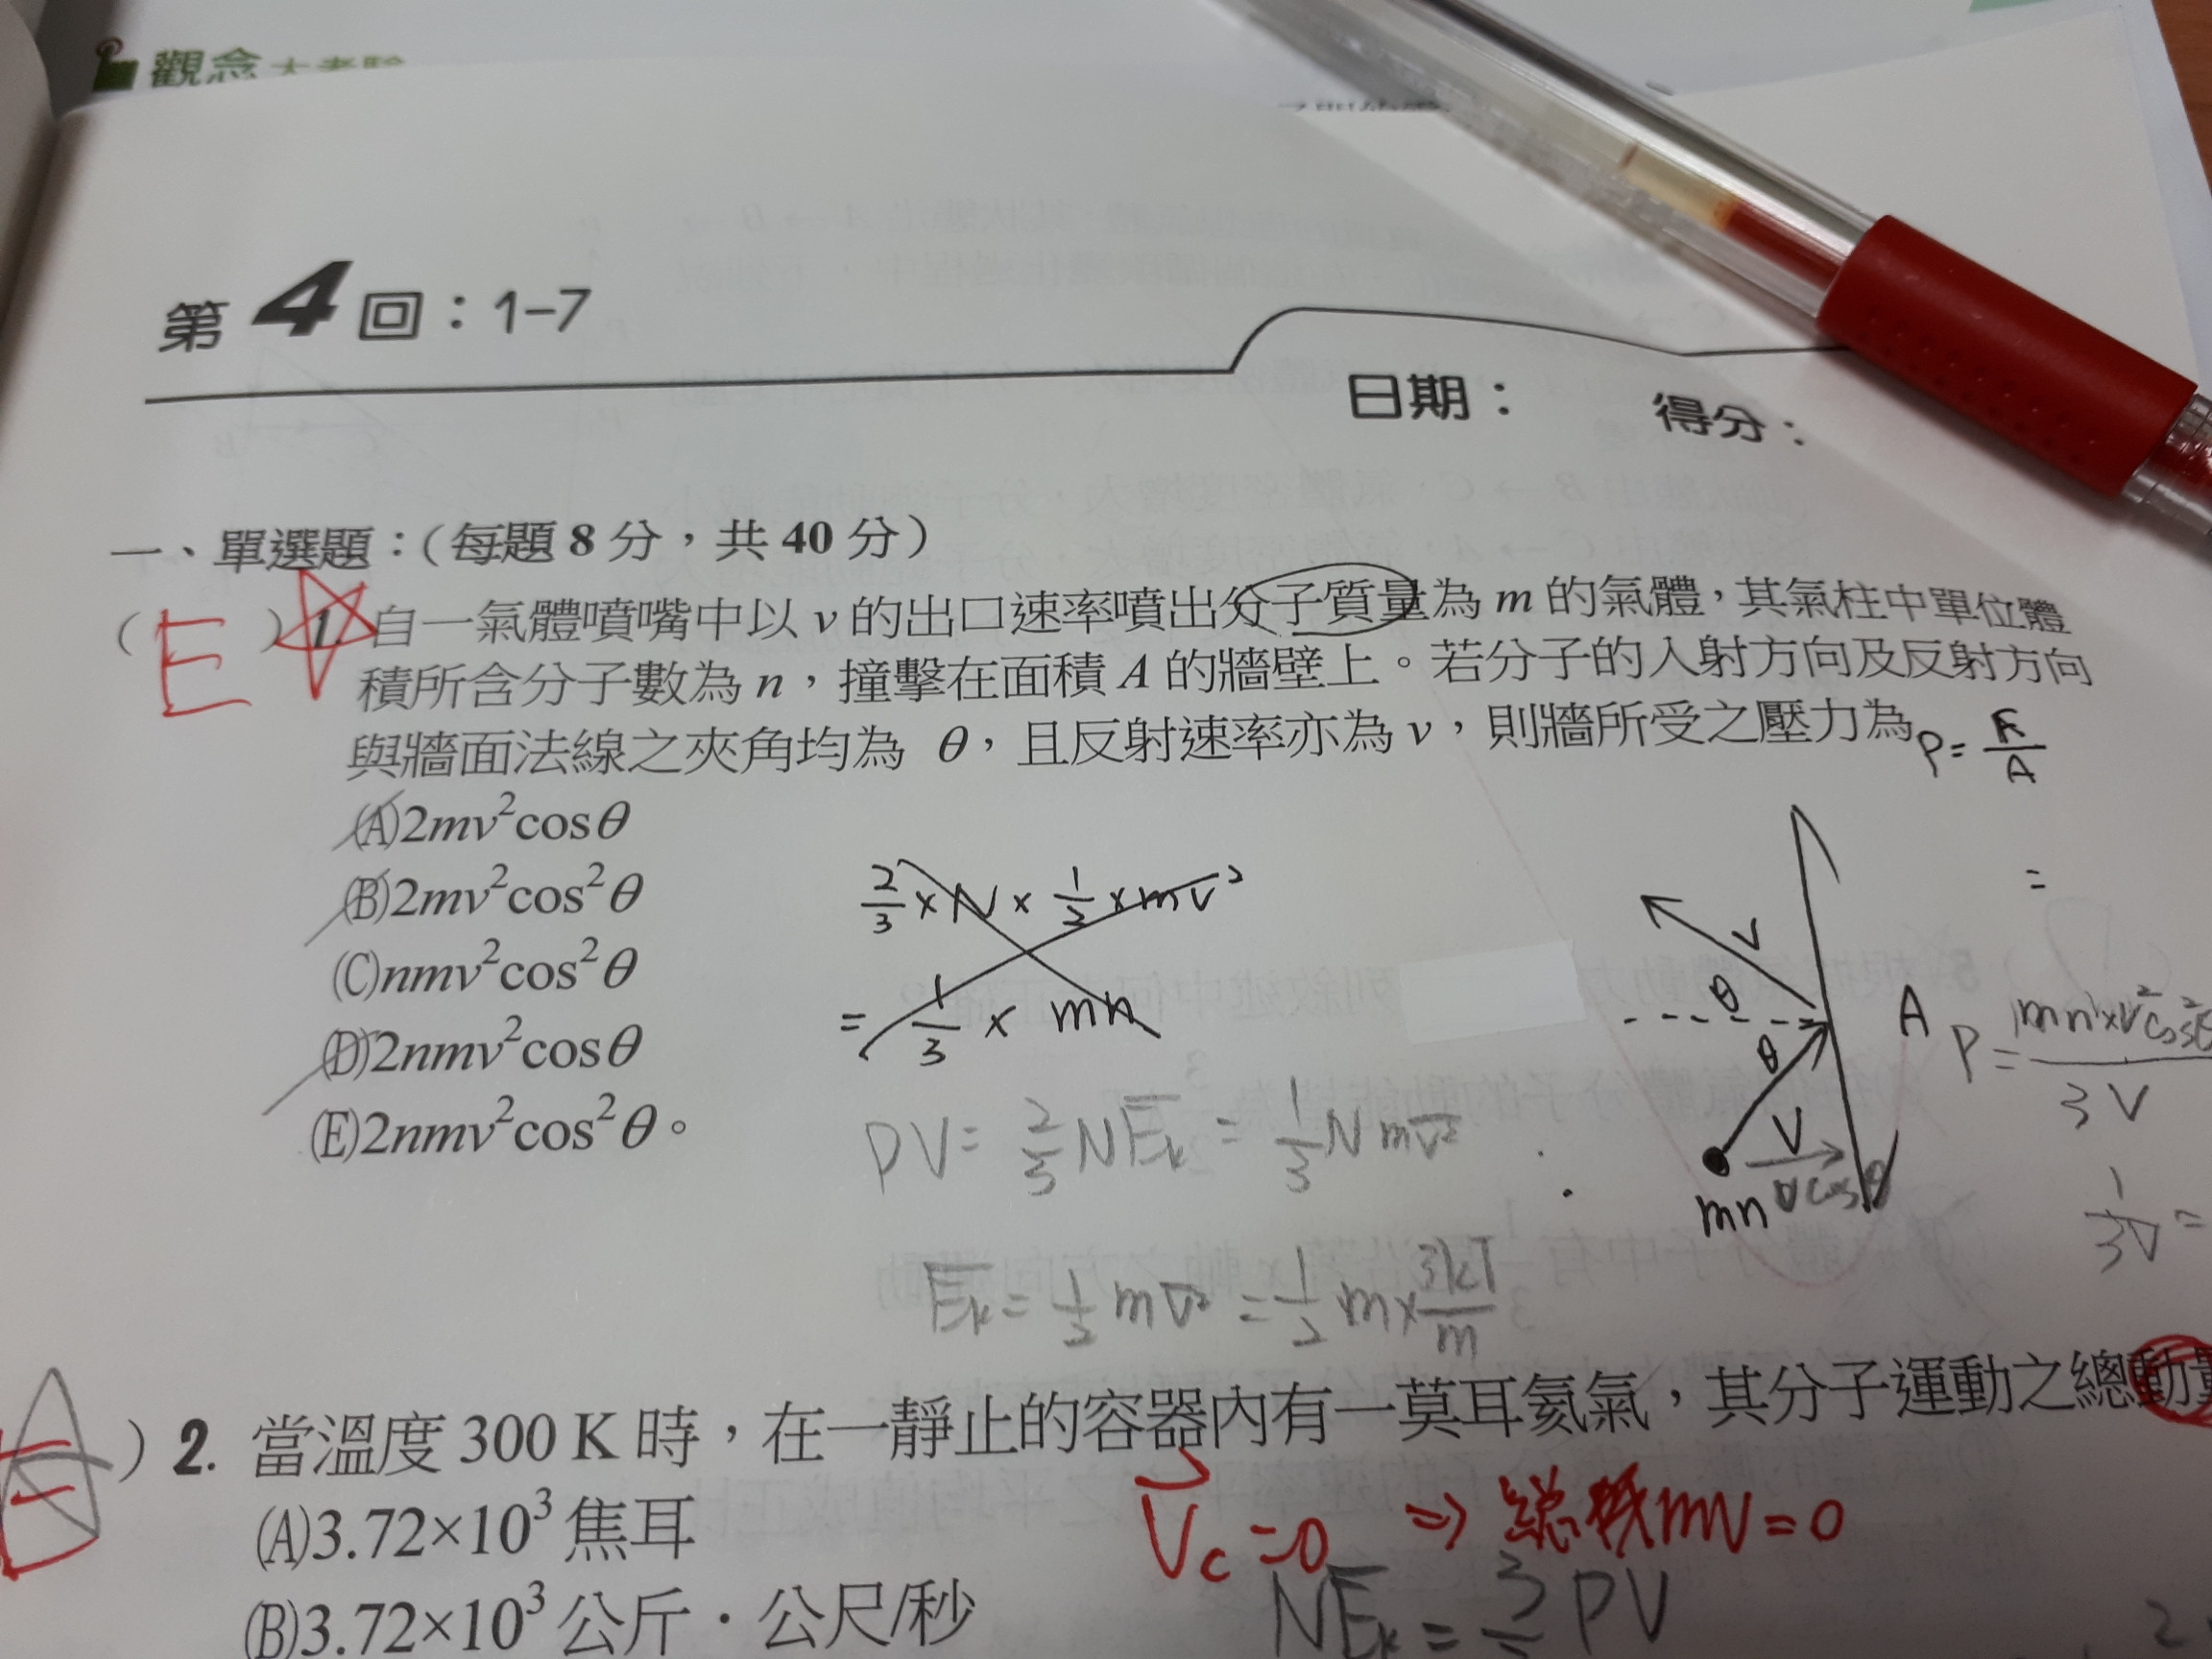 觀念大考驗
第4回：1-7
日期：　得分：
一、單選題：（每題 8 分，共 40 分）
（E）1. 自一氣體噴嘴中以 v 的出口速率噴出分子質量為 m 的氣體，其氣柱中單位體
積所含分子數為 n，撞擊在面積 A 的牆壁上。若分子的入射方向及反射方向
與牆面法線之夾角均為 θ，且反射速率亦為 v，則牆所受之壓力為
P = F/A
(A)2mv²cosθ
(B)2mv²cos²θ
(C)nmv²cos²θ
(D)2nmv²cosθ
(E)2nmv²cos²θ。
2/3 × N × 1/2 × mv²
= 1/3 × mn
PV = 2/3 NEk = 1/3 N mv²
Ek = 1/2 mv² = 1/2 m × 3kT/m
v
θ
θ
A
V
mn
v cosθ
=
P = mn × v²cos²θ / 3V
1/3V =
）2. 當溫度 300 K 時，在一靜止的容器內有一莫耳氦氣，其分子運動之總動
(A)3.72×10³ 焦耳
Vc = 0 ⇒ 總 mv = 0
(B)3.72×10³ 公斤．公尺/秒
NEk = 3/2 PV